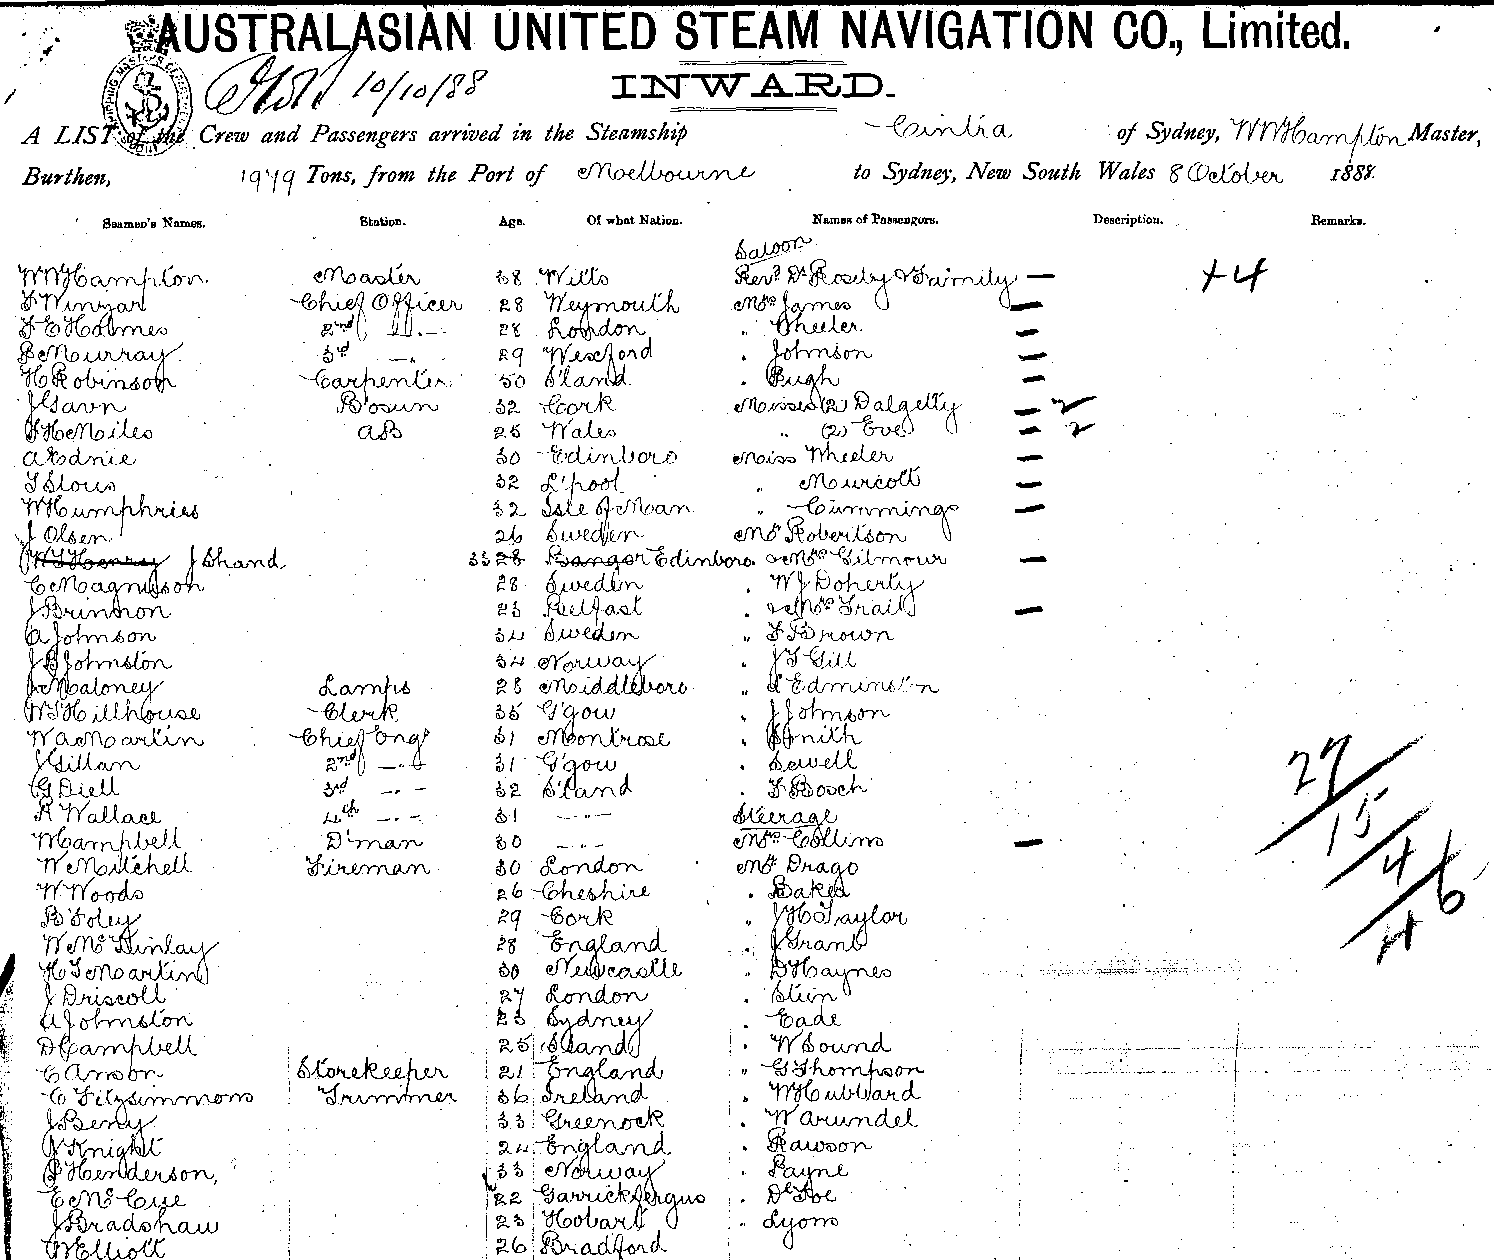 AUSTRALASIAN UNITED STEAM NAVIGATION CO., Limited.
10/10/88
INWARD.
A LIST of the Crew and Passengers arrived in the Steamship Cintra of Sydney, W W Hampton Master,
Burthen, 1979 Tons, from the Port of Melbourne to Sydney, New South Wales 8 October 1888.
Seamen's Names. Station. Age. Of what Nation. Names of Passengers. Description. Remarks.
Saloon
W W Hampton Master 38 Wilts Revd Dr Roseby & Family — +4
F Winzar Chief Officer 28 Weymouth Mrs James —
F E Holmes 2nd 28 London " Wheeler —
Murray 3rd 29 Wexford " Johnson —
H Robinson Carpenter 50 S'land " Pugh —
J Gavn B'osun 32 Cork Misses (2) Dalgetty — 2
F H Miles AB 25 Wales " (2) Eve — 2
A Ednie 30 Edinboro Miss Wheeler —
32 L'pool " Murcott —
W Humphries 32 Isle of Man " Cummings —
J Olsen 26 Sweden Mr Robertson
W S Henry J Shand 33 28 Bangor Edinboro & Mrs Gilmour —
C Magnusson 28 Sweden " W J Doherty
J Brinnon 23 Belfast " & Mrs Trail —
A Johnson 34 Sweden " F Brown
J B Johnston 34 Norway " J S Gill
J Maloney Lamps 28 Middleboro " Edminston
W S Hillhouse Clerk 35 G'gow " J Johnson
W A Martin Chief Engr 31 Montrose " Smith
J Gillan 2nd -"- 31 G'gow " Sewell
G Diell 3rd -"- 32 S'land " F Bosch
R Wallace 4th -"- 31 -"- Steerage
W Campbell D'man 30 -"- Mrs Collins —
W Mitchell Fireman 30 London Mr Drago
W Woods 26 Cheshire " Baker
B Foley 29 Cork " J H Taylor
W McKinlay 28 England " J Grant
H S Martin 30 Newcastle " D Haynes
J Driscoll 27 London " Stein
A Johnston 23 Sydney " Eade
D Campbell 25 S'land " W Sound
C Anson Storekeeper 21 England " G Thompson
C Fitzsimmons Trimmer 36 Ireland " W Hubbard
J Berry 33 Greenock " W Arundel
J Knight 24 England " Rawson
P Henderson, 33 Norway " Payne
E McCue 22 Garrickfergus " De Foe
J Bradshaw 23 Hobart " Lyons
W Elliott 26 Bradford
27
15
4
46